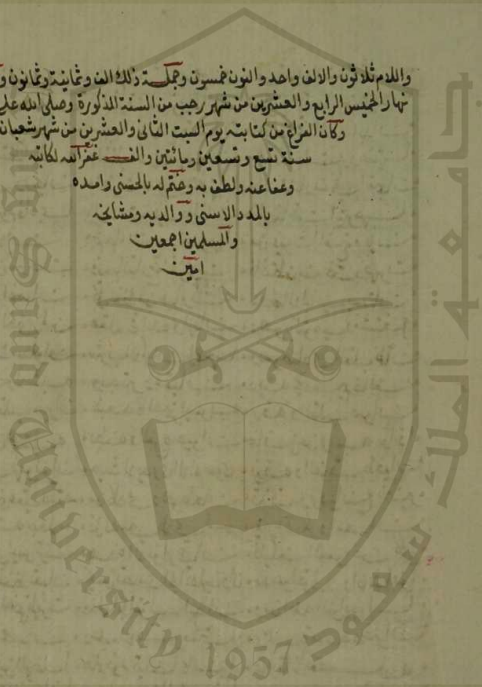 واللام ثلاثون والالف واحد والنون خمسون وجملة ذلك الف وثمانية وثمانون و
نهار الخميس الرابع والعشرين من شهر رجب من السنة المذكورة وصلى الله على
وكان الفراغ من كتابته يوم السبت الثانى والعشرين من شهر شعبان
سنة تسع وتسعين ومائتين والف غفر الله لكاتبه
وعفا عنه ولطف به وختم له بالحسنى وامده
بالمدد الاسنى ووالديه ومشايخه
والمسلمين اجمعين
امين
جامعة الملك سعود
King Saud University
1957